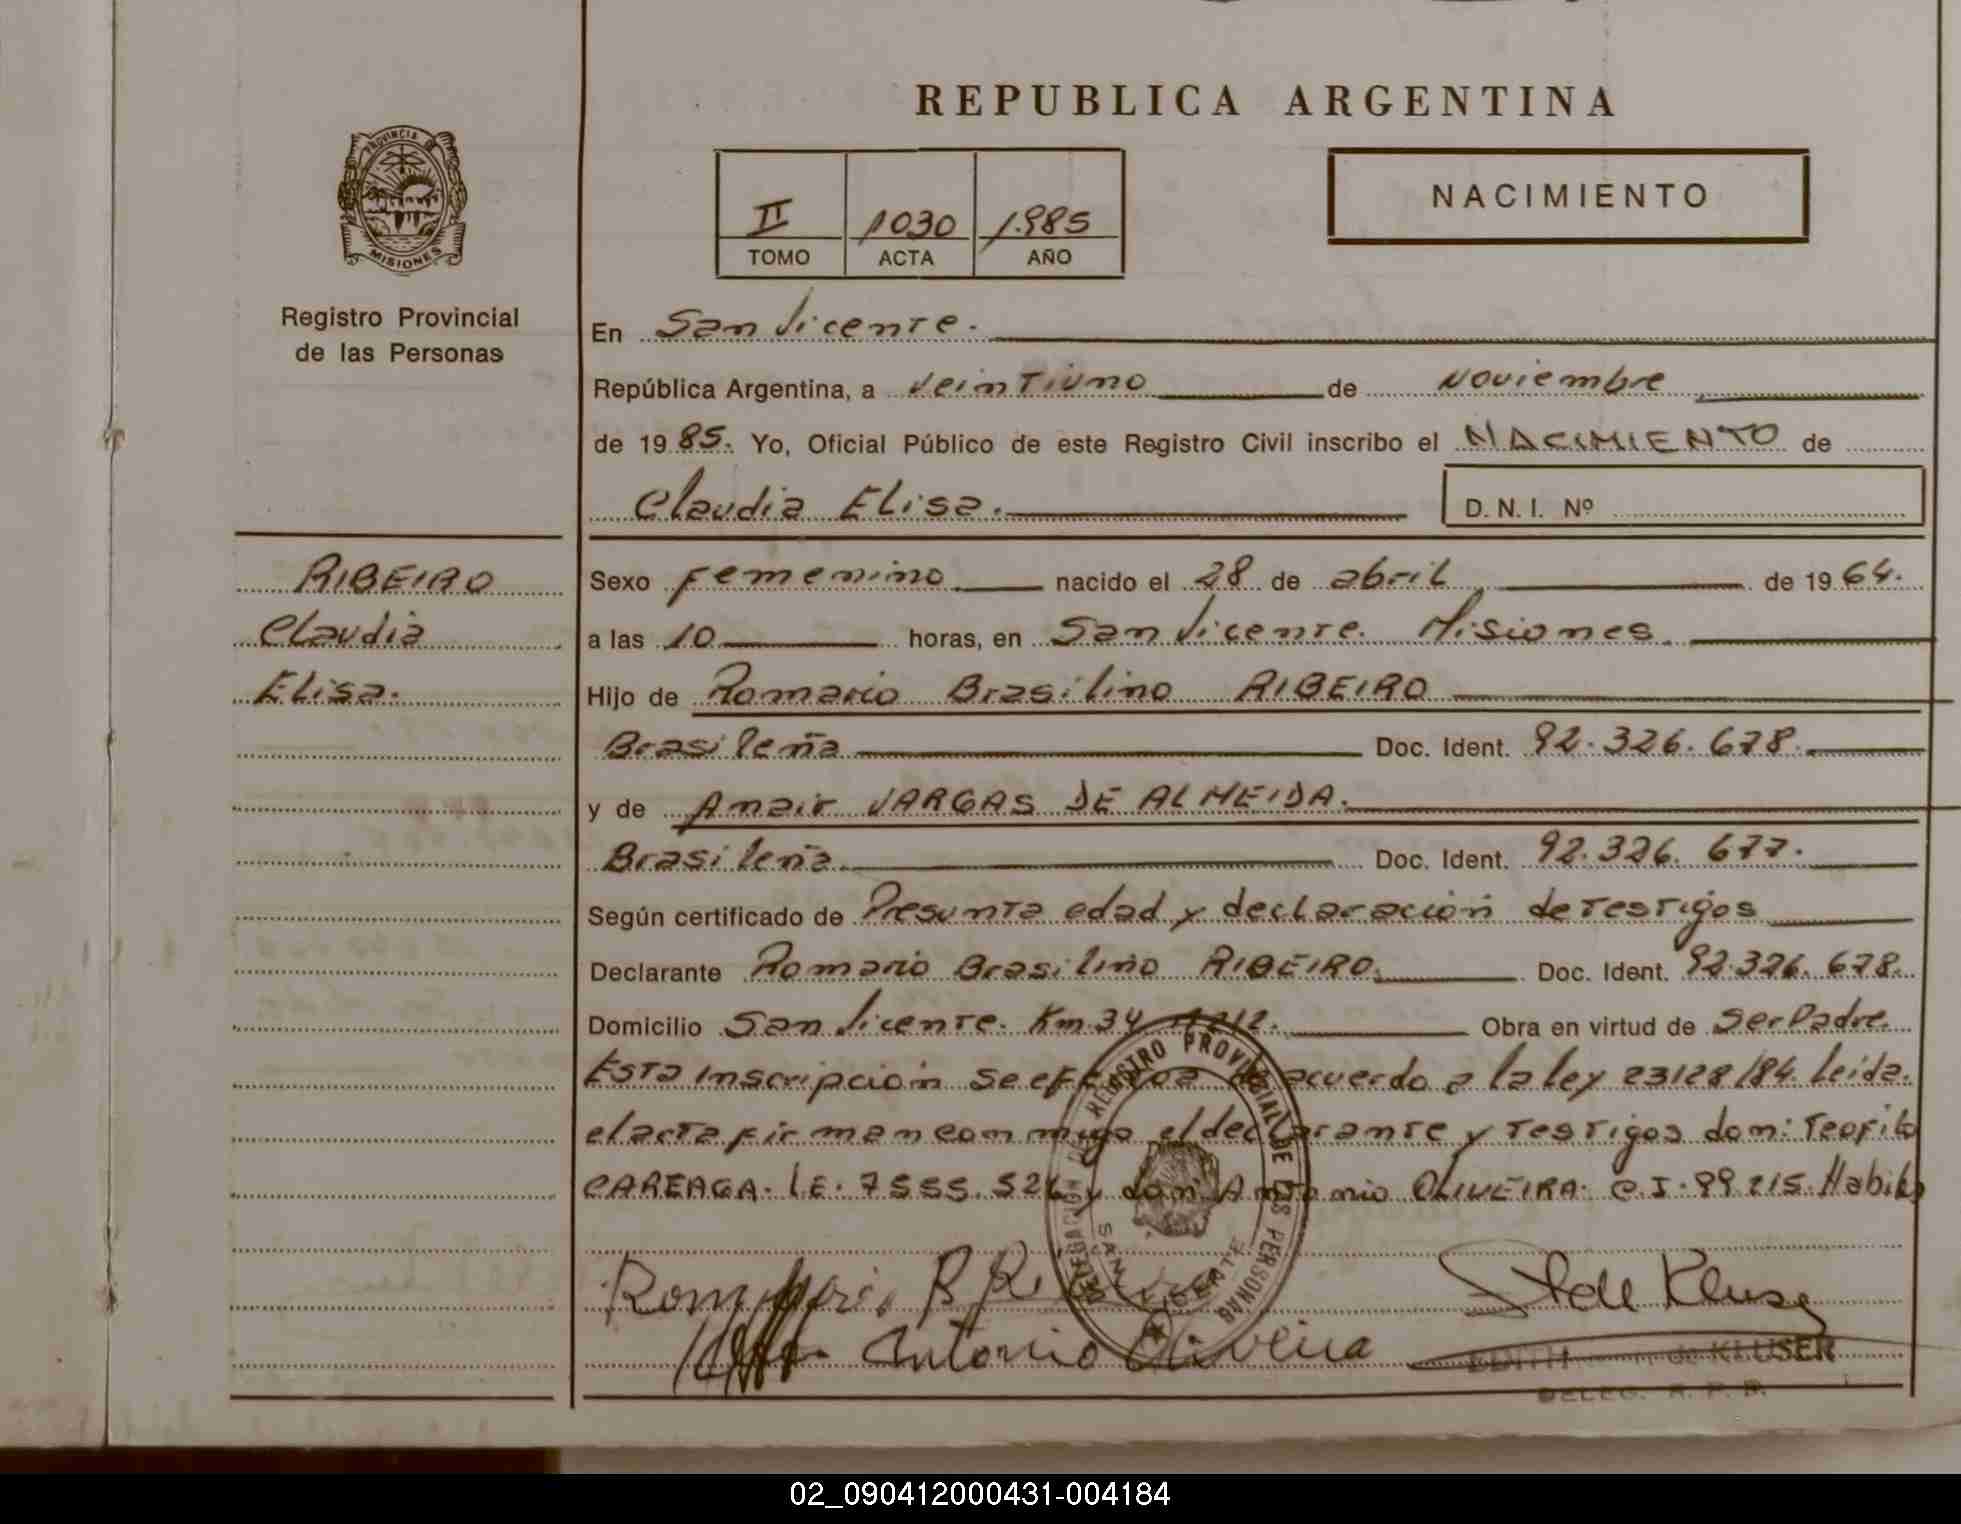 REPUBLICA ARGENTINA
PROVINCIA DE
MISIONES
Registro Provincial
de las Personas
II 1030 1.985
TOMO ACTA AÑO
NACIMIENTO
En San Vicente.
República Argentina, a Veintiuno de Noviembre
de 19 85. Yo, Oficial Público de este Registro Civil inscribo el NACIMIENTO de
Claudia Elisa.
D. N. I. Nº
RIBEIRO
Claudia
Elisa.
Sexo Femenino nacido el 28 de abril de 19 64.
a las 10 horas, en San Vicente. Misiones.
Hijo de Romario Brasilino RIBEIRO
Brasileña Doc. Ident. 92.326.678.
y de Anair VARGAS DE ALMEIDA.
Brasileña Doc. Ident. 92.326.677.
Según certificado de Presunta edad y declaración de testigos
Declarante Romario Brasilino RIBEIRO. Doc. Ident. 92.326.678.
Domicilio San Vicente. Km.34 212. Obra en virtud de Ser Padre.
Esta inscripción se efectua de acuerdo a la ley 23128/84. Leida.
el acta firman conmigo el declarante y testigos don: Teofilo
CAREAGA. LE. 7555.526 y don: Antonio OLIVEIRA. C.I. 99.215. Habiles
DELEGACION DEL REGISTRO PROVINCIAL DE LAS PERSONAS
SAN VICENTE
Antonio Oliveira
EDITH de KLUSER
DELEG. R. P. P.
02_090412000431-004184